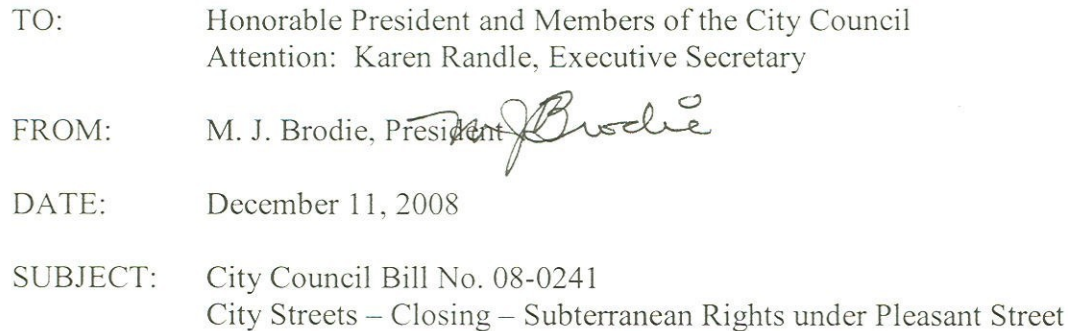 TO: Honorable President and Members of the City Council
Attention: Karen Randle, Executive Secretary
FROM: M. J. Brodie, President MJBrodie
DATE: December 11, 2008
SUBJECT: City Council Bill No. 08-0241
City Streets – Closing – Subterranean Rights under Pleasant Street